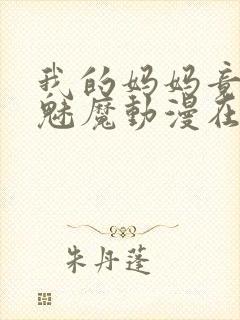 我的妈妈竟
魅魔動漫在
朱丹蓬